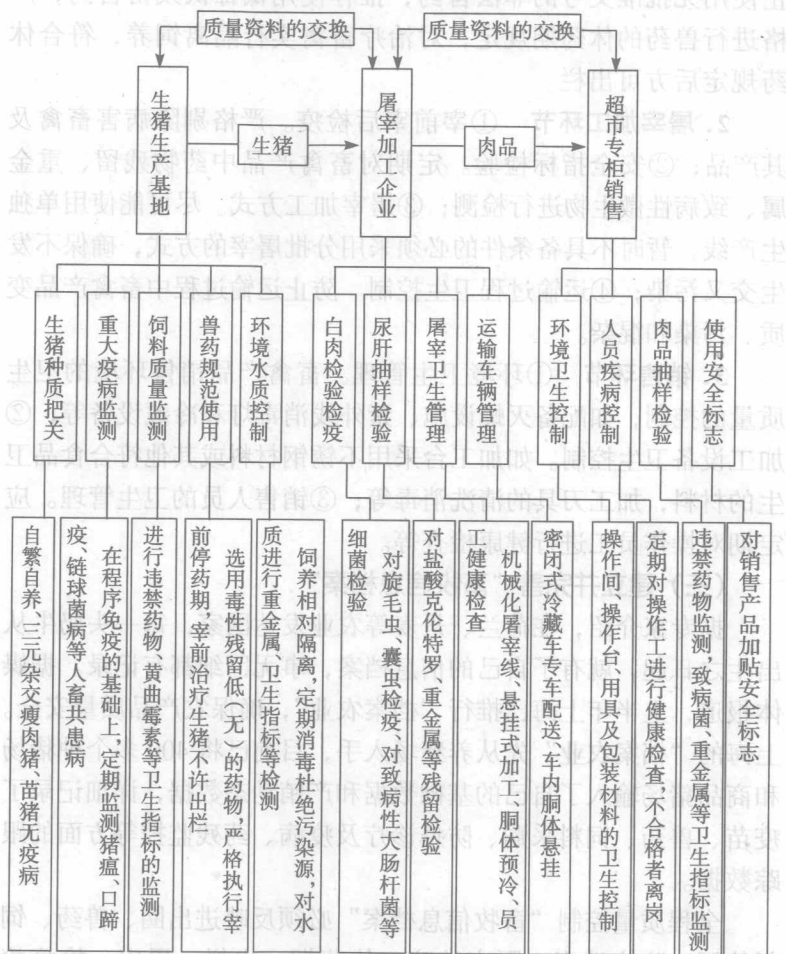 质量资料的交换
质量资料的交换
生猪生产基地
生猪
屠宰加工企业
肉品
超市专柜销售
生猪种质把关
重大疫病监测
饲料质量监测
兽药规范使用
环境水质控制
白肉检验检疫
尿肝抽样检验
屠宰卫生管理
运输车辆管理
环境卫生控制
人员疾病控制
肉品抽样检验
使用安全标志
自繁自养、三元杂交瘦肉猪、苗猪无疫病
在程序免疫的基础上,定期监测猪瘟、口蹄
疫、链球菌病等人畜共患病
进行违禁药物、黄曲霉素等卫生指标的监测
选用毒性残留低、无的药物,严格执行宰
前停药期,宰前治疗生猪不许出栏
饲养相对隔离,定期消毒杜绝污染源,对水
质进行重金属、卫生指标等检测
对旋毛虫、囊虫检疫、对致病性大肠杆菌等
细菌检验
对盐酸克伦特罗、重金属等残留检验
机械化屠宰线、悬挂式加工、胴体预冷、员
工健康检查
密闭式冷藏车专车配送、车内胴体悬挂
操作间、操作台、用具及包装材料的卫生控制
定期对操作工进行健康检查,不合格者离岗
违禁药物监测,致病菌、重金属等卫生指标监测
对销售产品加贴安全标志